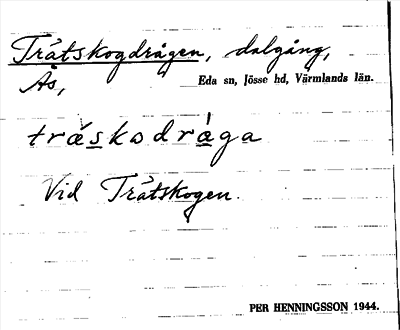 Tråtskogdrågen, dalgång,
Ås, Eda sn, Jösse hd, Värmlands län.
trå̀skɷdrà̱ga
Vid Tråtskogen.
PER HENNINGSSON 1944.